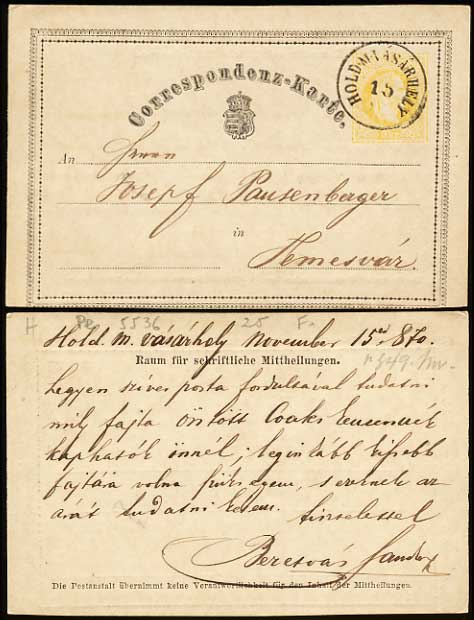 Correspondenz-Karte.
HOLD-M-VÁSÁRHELY
15
An Herrn
Josepf Pausenberger
in
Temesvár
H Pe. 5536 25 F.
Hold. m. vásárhely november 15én 870.
Raum für schriftliche Mittheilungen.
hegyen szives posta fordultával tudatni
mily fajta öntött Coaks
kaphatók önnél; leginkább kisebb
fajtára volna szükségem, s ezeknek az
árát tudatni kérem.
tisztelettel
Die Postanstalt übernimmt keine Verantwortlichkeit für den Inhalt der Mittheilungen.